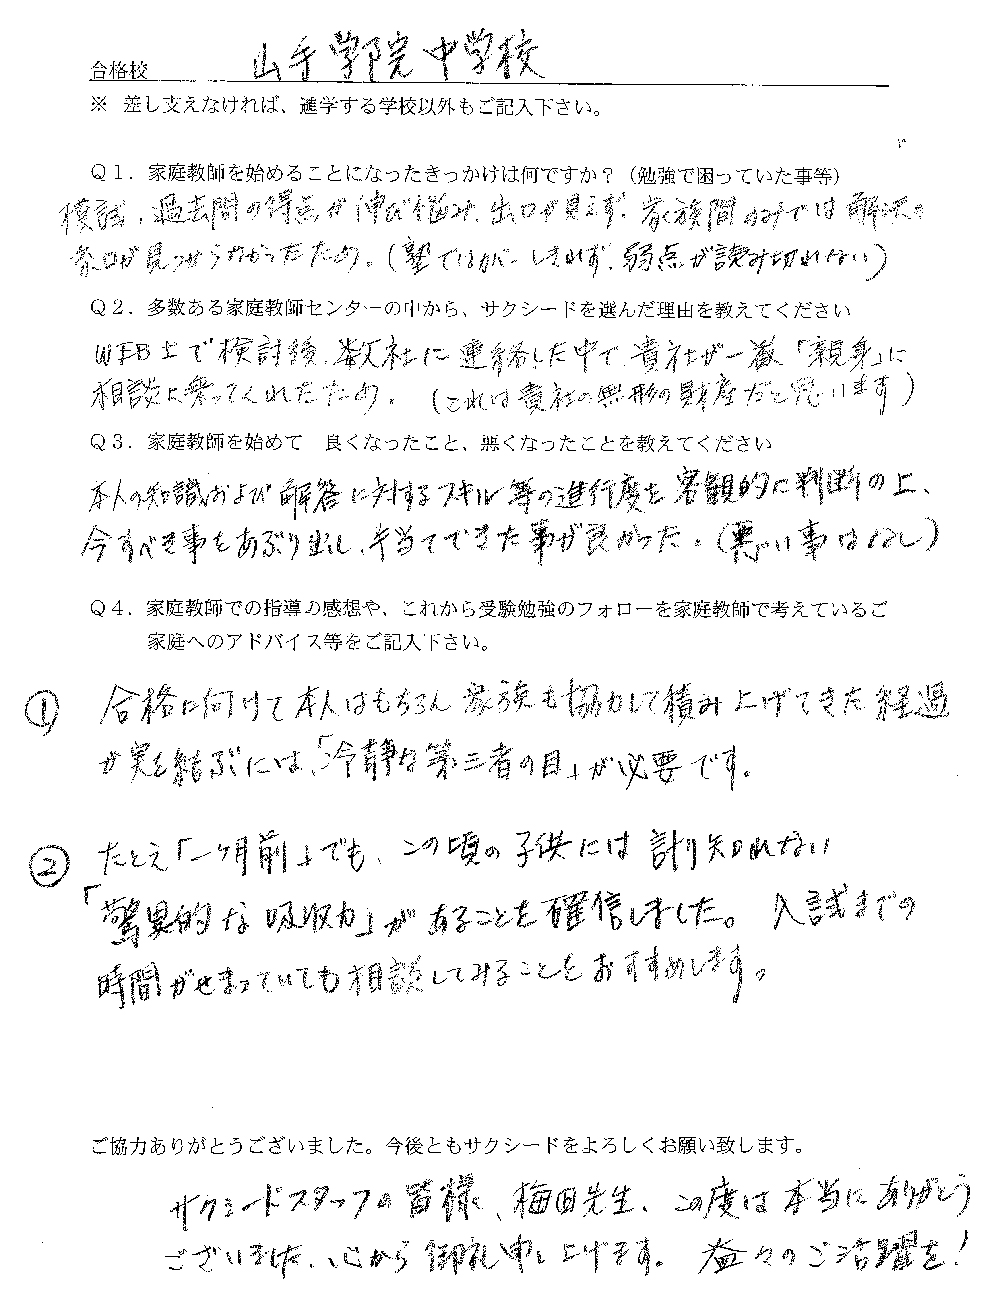 合格校 山手学院中学校
※ 差し支えなければ、進学する学校以外もご記入下さい。
Q1．家庭教師を始めることになったきっかけは何ですか？（勉強で困っていた事等）
模試、過去問の得点が伸び悩み、出口が見えず、家族間のみでは解決の
糸口が見つからなかったため。（塾ではカバーしきれず、弱点が読み切れない）
Q2．多数ある家庭教師センターの中から、サクシードを選んだ理由を教えてください
WEB上で検討後、数社に連絡した中で、貴社が一番「親身」に
相談に乗ってくれたため。（これは貴社の無形の財産だと思います）
Q3．家庭教師を始めて　良くなったこと、悪くなったことを教えてください
本人の知識および解答に対するスキル等の進行度を客観的に判断の上、
今すべき事をあぶり出し、手当てできた事が良かった。（悪い事はなし）
Q4．家庭教師での指導の感想や、これから受験勉強のフォローを家庭教師で考えているご
家庭へのアドバイス等をご記入下さい。
① 合格に向けて本人はもちろん家族も協力して積み上げてきた経過
が実を結ぶには、「冷静な第三者の目」が必要です。
② たとえ「一ヶ月前」でも、この頃の子供には計り知れない
「驚異的な吸収力」があることを確信しました。入試までの
時間がせまっていても相談してみることをおすすめします。
ご協力ありがとうございました。今後ともサクシードをよろしくお願い致します。
サクシードスタッフの皆様、梅田先生、この度は本当にありがとう
ございました、心から御礼申し上げます。益々のご活躍を！